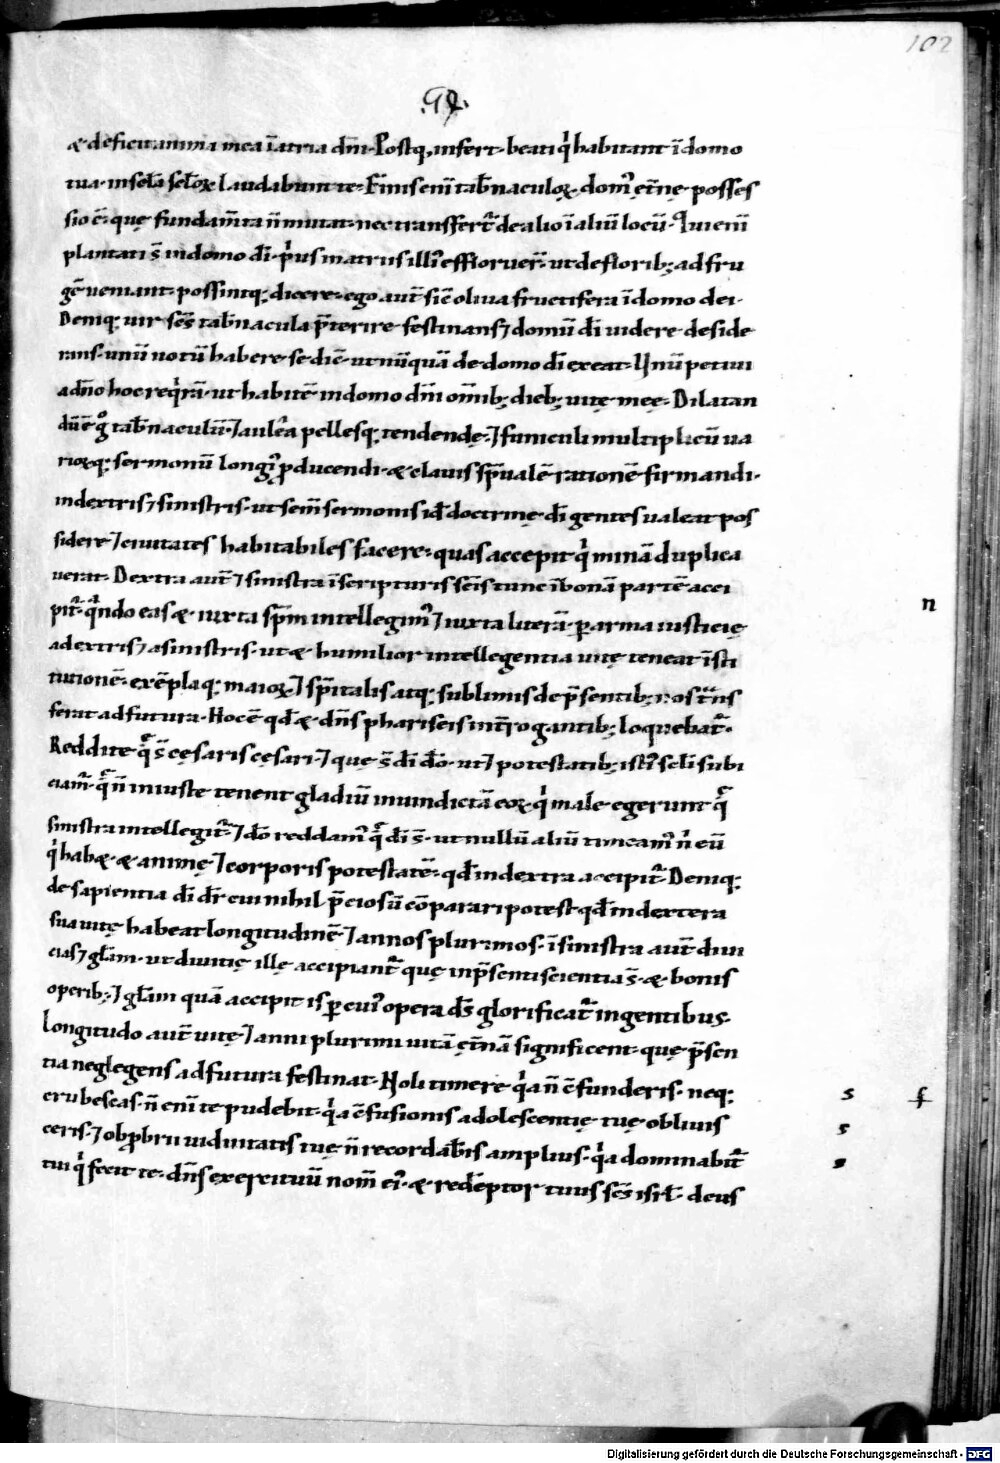 102
·97·
& deficit anima mea ī atria dn̄i· Postq; infert· beati qͥ habitant ī domo
tua· in scl̄a scl̄oꝝ laudabunt te· Finis eni tab̄naculoꝝ domꝰ et̄nę posses
sio ē· quę fundam̄ta n̄ mutat· nec transfert᷑ de alio ī aliū locū· Qui eni
plantati s̄ in domo dī· pͥus in atriis illiꝰ effloruer̄· ut de florib; ad fru
gē ueniant· possintq; dicere· ego aut̄ sic̄ oliua fructifera ī domo dei·
Deniq; uir sc̄s tab̄nacula p̄terire festinans ⁊ domū dī uidere deside
rans· unū uotū habere se dic̄· ut nūquā de domo dī exeat· Unū petiui
a dn̄o hoc reqͥrā· ut habitē in domo dn̄i om̄ib; dieb; uitę meę· Dilatan
dū ē gͦ tab̄naculū· ⁊ aulęa pellesq; tendendę· ⁊ funiculi multiplicū ua
rioꝝq; sermonū longiꝰ ꝓducendi· & clauis sp̄uale ratione firmandi·
in dextris ⁊ sinistris· ut sem̄ sermonis id ē doctrinę dī gentes ualeat pos
sidere ⁊ ciuitates habitabiles facere· quas accepit qͥ minā duplica
uerat· Dextra aut̄ ⁊ sinistra ī scripturis sc̄is tunc ī bonā partē acci
pit᷑· qͣndo eas & iuxta sp̄m intellegimꝰ ⁊ iuxta literā· ꝑ arma iusticię
a dextris ⁊ a sinistris· ut & humilior intellegentia uitę teneat īsti
tutionē· exēplaq; maioꝝ ⁊ sp̄italis atq; sublimis de p̄sentib; nos trn̄s
ferat ad futura· Hoc ē qd̄ & dn̄s phariseis int̄rogantib; loquebat᷑·
Reddite qͣ s̄ cęsaris cęsari· ⁊ quę s̄ dī dō· ut ⁊ potestatib; istiꝰ scl̄i subi
ciam᷑· qͣ n̄ iniuste tenent gladiū in uindictā eoꝝ qͥ male egerunt qͣ
sinistra intellegit᷑· ⁊ dō reddamꝰ qͣ dī s̄· ut nullū aliū timeamꝰ n̄ eū
qͥ hab& & animę ⁊ corporis potestatē· qd̄ in dextra accipit᷑· Deniq;
de sapientia dī dr̄ cui nihil p̄ciosū cōparari potest· qd̄ in dextera
sua uitę habeat longitudinē ⁊ annos plurimos· ī sinistra aut̄ diui
cias ⁊ gl̄am· ut diuitię illę accipiant᷑ quę in p̄senti scientia s̄· & bonis
operib; ⁊ gl̄am quā accipit is ꝑ cuiꝰ opera ds̄ glorificat᷑ in gentibus·
Longitudo aut̄ uitę ⁊ anni plurimi uitā et̄nā significent· quę p̄sen
tia neglegens ad futura festinat· Noli timere qͥa n̄ cōfunderis· neq;
erubescas· n̄ eni te pudebit· qͥa cōfusionis adolescentię tuę obliuis
ceris· ⁊ obꝓbrii uiduitatis tuę n̄ recordab̄is amplius· qͥa dominabit᷑
tui qͥ fecit te· dn̄s exercituū nom̄ eiꝰ· & redēptor tuus sc̄s isrl̄· deus
n
s f
s
Digitalisierung gefördert durch die Deutsche Forschungsgemeinschaft - DFG